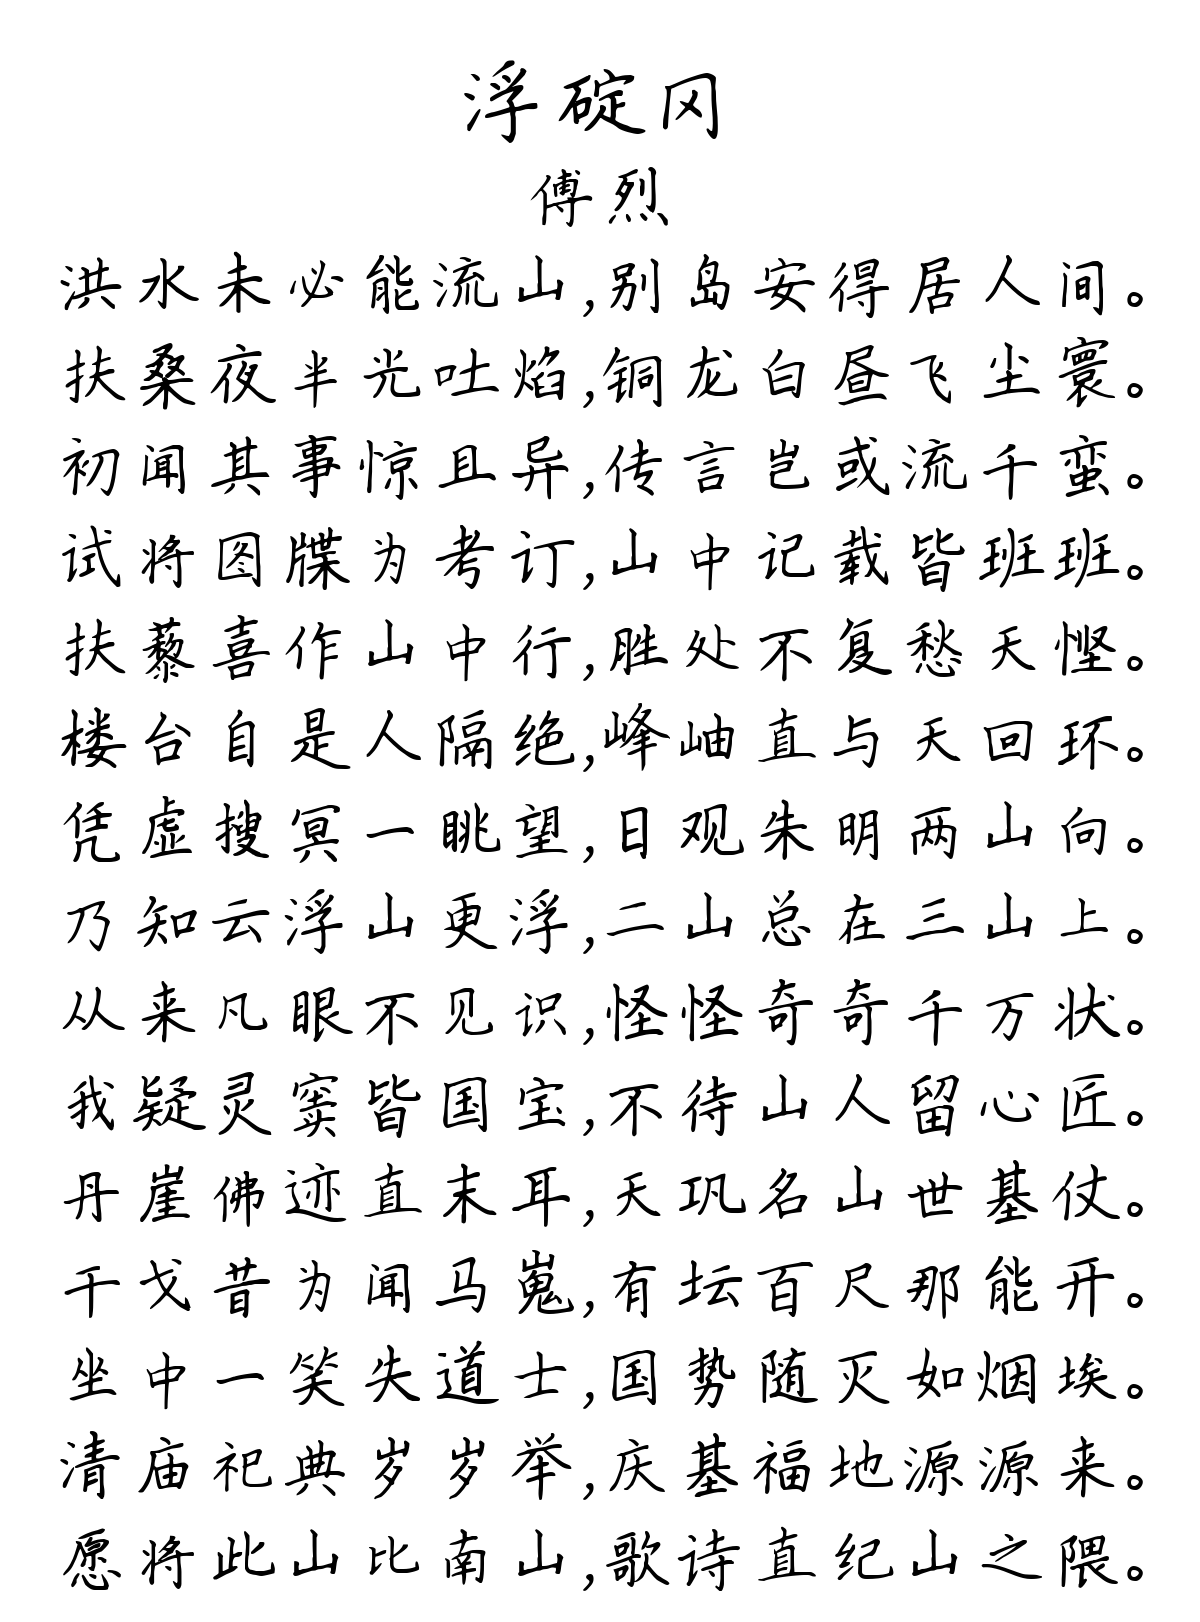 浮碇冈
傅烈
洪水未必能流山,别岛安得居人间。
扶桑夜半光吐焰,铜龙白昼飞尘寰。
初闻其事惊且异,传言岂或流千蛮。
试将图牒为考订,山中记载皆班班。
扶藜喜作山中行,胜处不复愁天悭。
楼台自是人隔绝,峰岫直与天回环。
凭虚搜冥一眺望,日观朱明两山向。
乃知云浮山更浮,二山总在三山上。
从来凡眼不见识,怪怪奇奇千万状。
我疑灵窦皆国宝,不待山人留心匠。
丹崖佛迹直末耳,天巩名山世基仗。
干戈昔为闻马嵬,有坛百尺那能开。
坐中一笑失道士,国势随灭如烟埃。
清庙祀典岁岁举,庆基福地源源来。
愿将此山比南山,歌诗直纪山之隈。